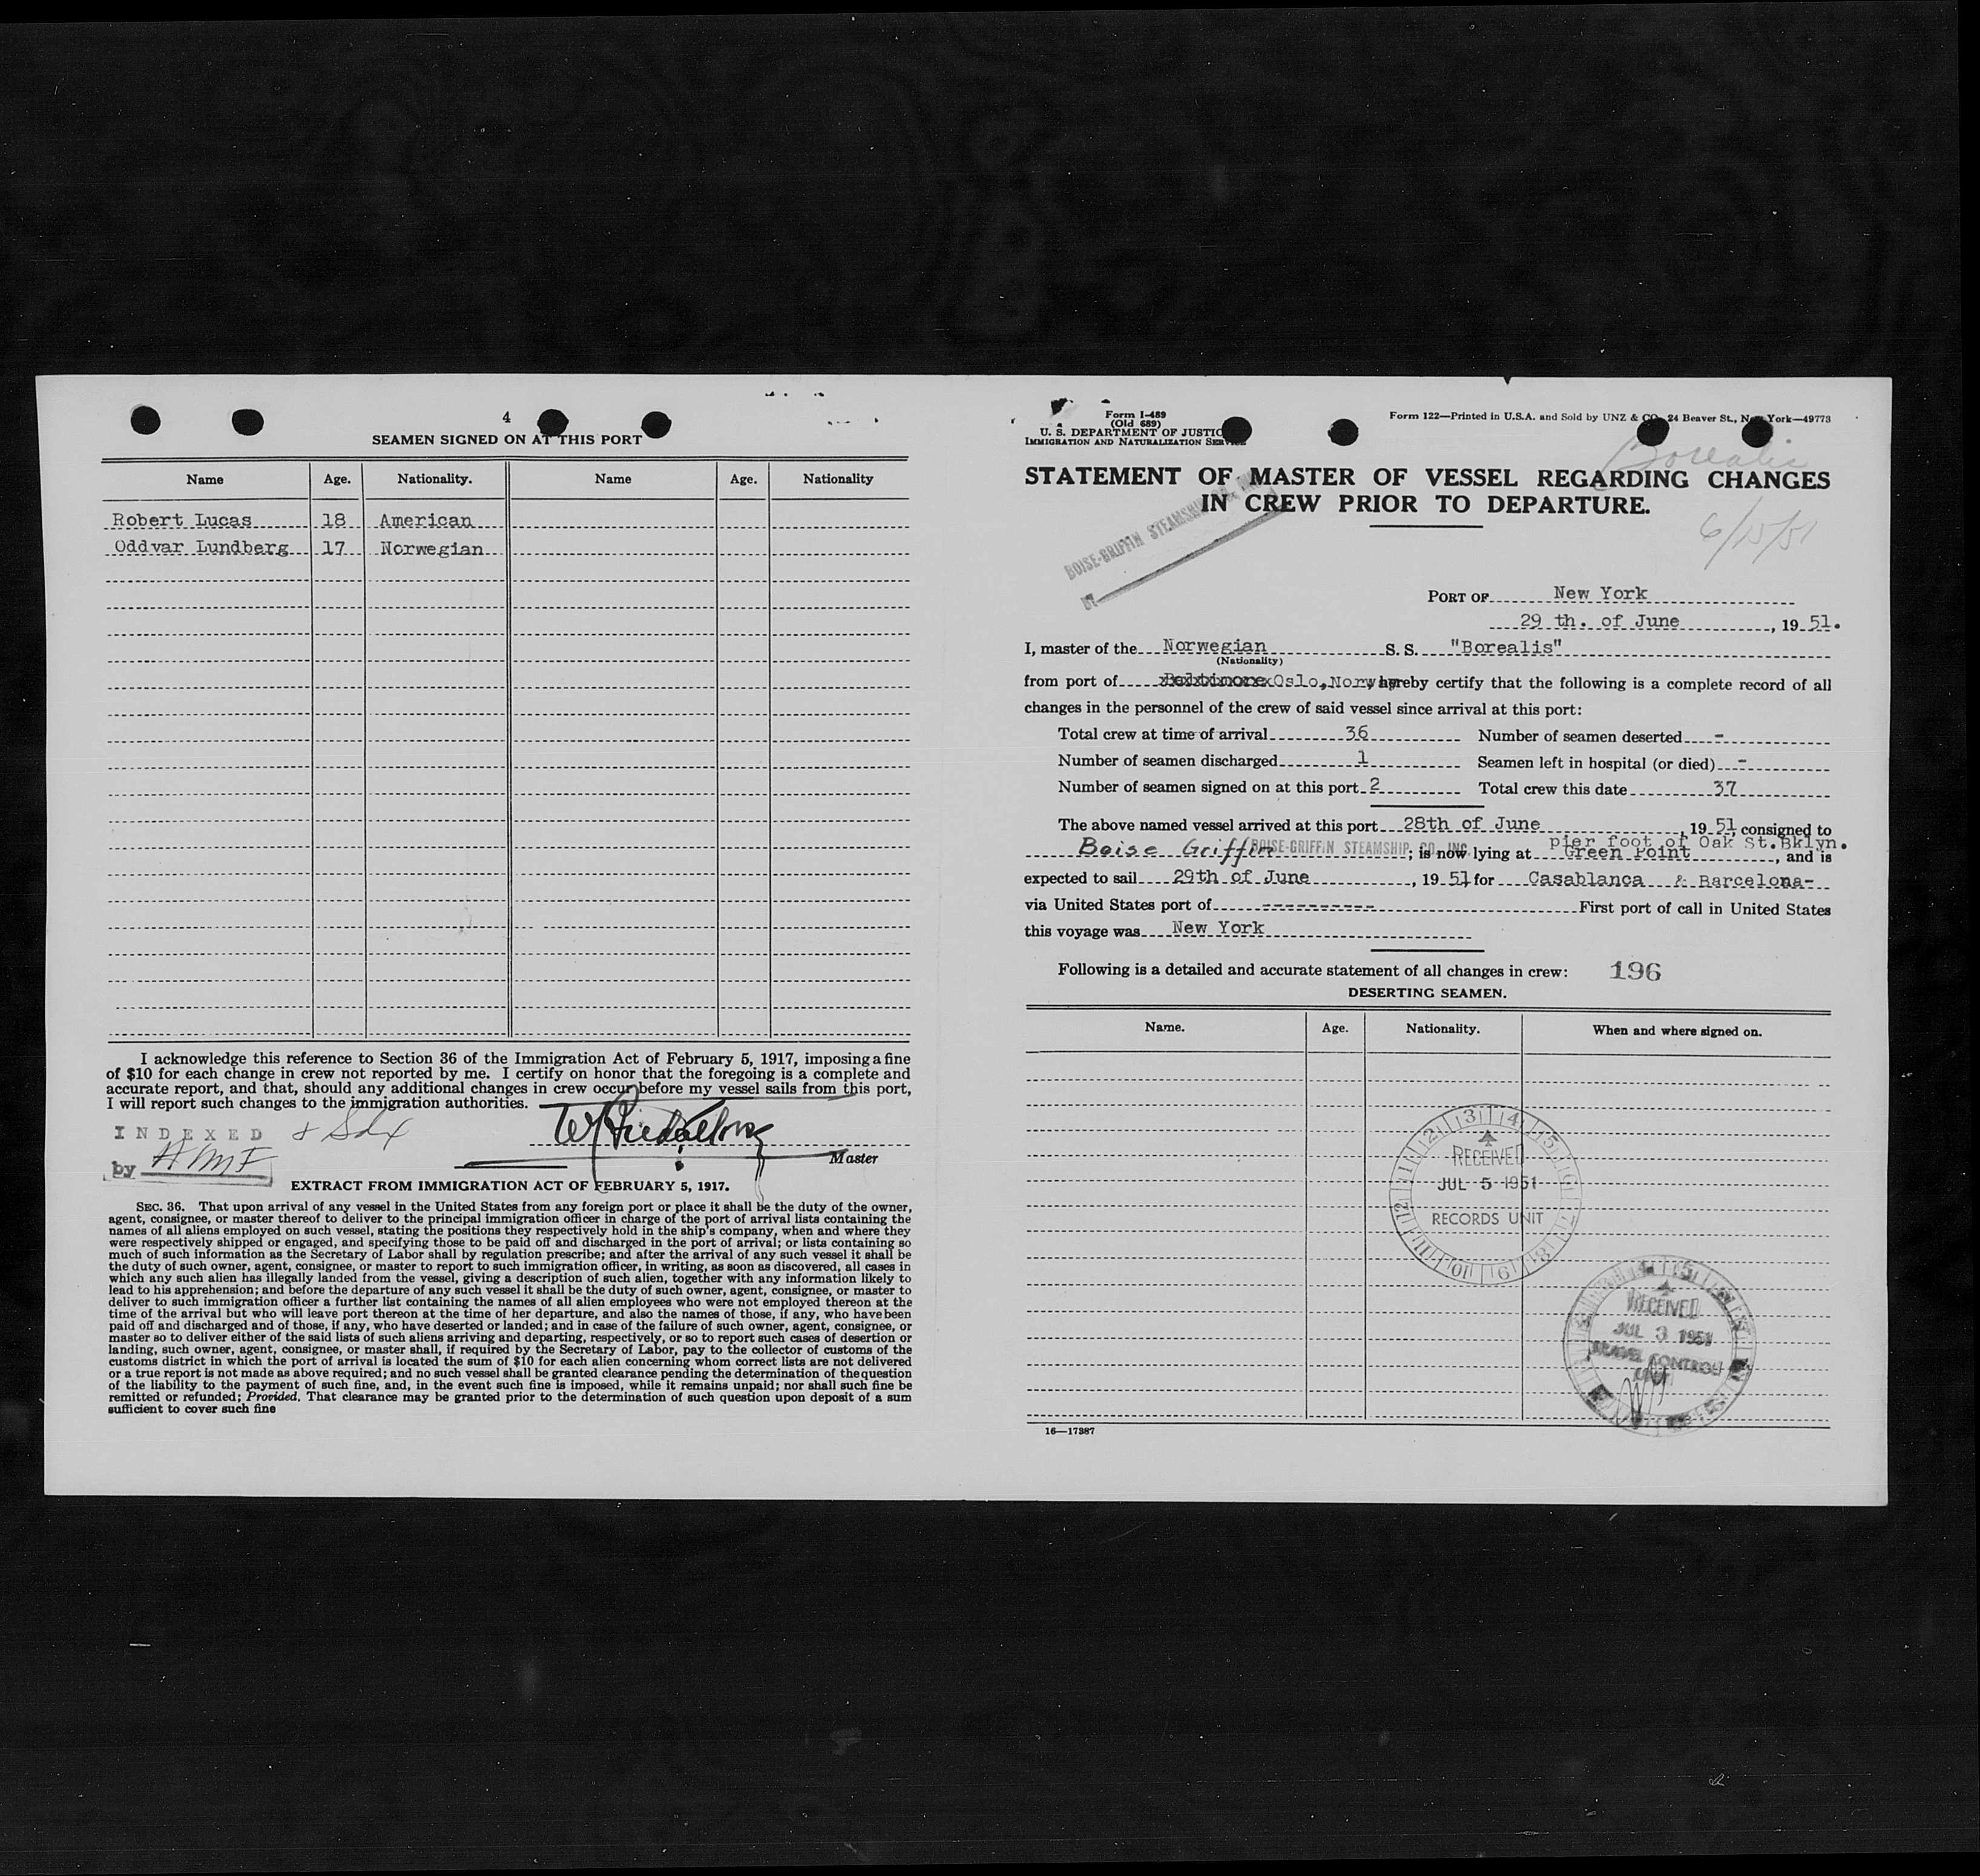 4
SEAMEN SIGNED ON AT THIS PORT
Name Age. Nationality. Name Age. Nationality
Robert Lucas 18 American
Oddvar Lundberg 17 Norwegian
I acknowledge this reference to Section 36 of the Immigration Act of February 5, 1917, imposing a fine
of $10 for each change in crew not reported by me. I certify on honor that the foregoing is a complete and
accurate report, and that, should any additional changes in crew occur before my vessel sails from this port,
I will report such changes to the immigration authorities.
INDEXED
by
Master
EXTRACT FROM IMMIGRATION ACT OF FEBRUARY 5, 1917.
SEC. 36. That upon arrival of any vessel in the United States from any foreign port or place it shall be the duty of the owner,
agent, consignee, or master thereof to deliver to the principal immigration officer in charge of the port of arrival lists containing the
names of all aliens employed on such vessel, stating the positions they respectively hold in the ship's company, when and where they
were respectively shipped or engaged, and specifying those to be paid off and discharged in the port of arrival; or lists containing so
much of such information as the Secretary of Labor shall by regulation prescribe; and after the arrival of any such vessel it shall be
the duty of such owner, agent, consignee, or master to report to such immigration officer, in writing, as soon as discovered, all cases in
which any such alien has illegally landed from the vessel, giving a description of such alien, together with any information likely to
lead to his apprehension; and before the departure of any such vessel it shall be the duty of such owner, agent, consignee, or master to
deliver to such immigration officer a further list containing the names of all alien employees who were not employed thereon at the
time of the arrival but who will leave port thereon at the time of her departure, and also the names of those, if any, who have been
paid off and discharged and of those, if any, who have deserted or landed; and in case of the failure of such owner, agent, consignee, or
master so to deliver either of the said lists of such aliens arriving and departing, respectively, or so to report such cases of desertion or
landing, such owner, agent, consignee, or master shall, if required by the Secretary of Labor, pay to the collector of customs of the
customs district in which the port of arrival is located the sum of $10 for each alien concerning whom correct lists are not delivered
or a true report is not made as above required; and no such vessel shall be granted clearance pending the determination of the question
of the liability to the payment of such fine, and, in the event such fine is imposed, while it remains unpaid; nor shall such fine be
remitted or refunded; Provided, That clearance may be granted prior to the determination of such question upon deposit of a sum
sufficient to cover such fine
Form I-489
(Old 689)
U. S. DEPARTMENT OF JUSTIC
IMMIGRATION AND NATURALIZATION SER
Form 122—Printed in U.S.A. and Sold by UNZ & CO., 24 Beaver St., New York—49773
Borealis
STATEMENT OF MASTER OF VESSEL REGARDING CHANGES
IN CREW PRIOR TO DEPARTURE.
6/15/51
BOISE-GRIFFIN STEAMSHIP
BY
PORT OF New York
29 th. of June, 19 51.
I, master of the Norwegian S. S. "Borealis"
(Nationality)
from port of Oslo, Norway hereby certify that the following is a complete record of all
changes in the personnel of the crew of said vessel since arrival at this port:
Total crew at time of arrival 36 Number of seamen deserted -
Number of seamen discharged 1 Seamen left in hospital (or died) -
Number of seamen signed on at this port 2 Total crew this date 37
The above named vessel arrived at this port 28th of June, 19 51, consigned to
pier foot of Oak St. Bklyn.
Boise Griffin BOISE-GRIFFIN STEAMSHIP CO. INC.; is now lying at Green Point, and is
expected to sail 29th of June, 19 51 for Casablanca & Barcelona-
via United States port of ---------- First port of call in United States
this voyage was New York
Following is a detailed and accurate statement of all changes in crew: 196
DESERTING SEAMEN.
Name. Age. Nationality. When and where signed on.
1 2 3 4 5 6 7 8 9 10 11 12
RECEIVED
JUL 5 1951
RECORDS UNIT
RECEIVED
JUL 3 1951
TRAVEL CONTROL
UNIT
16—17387